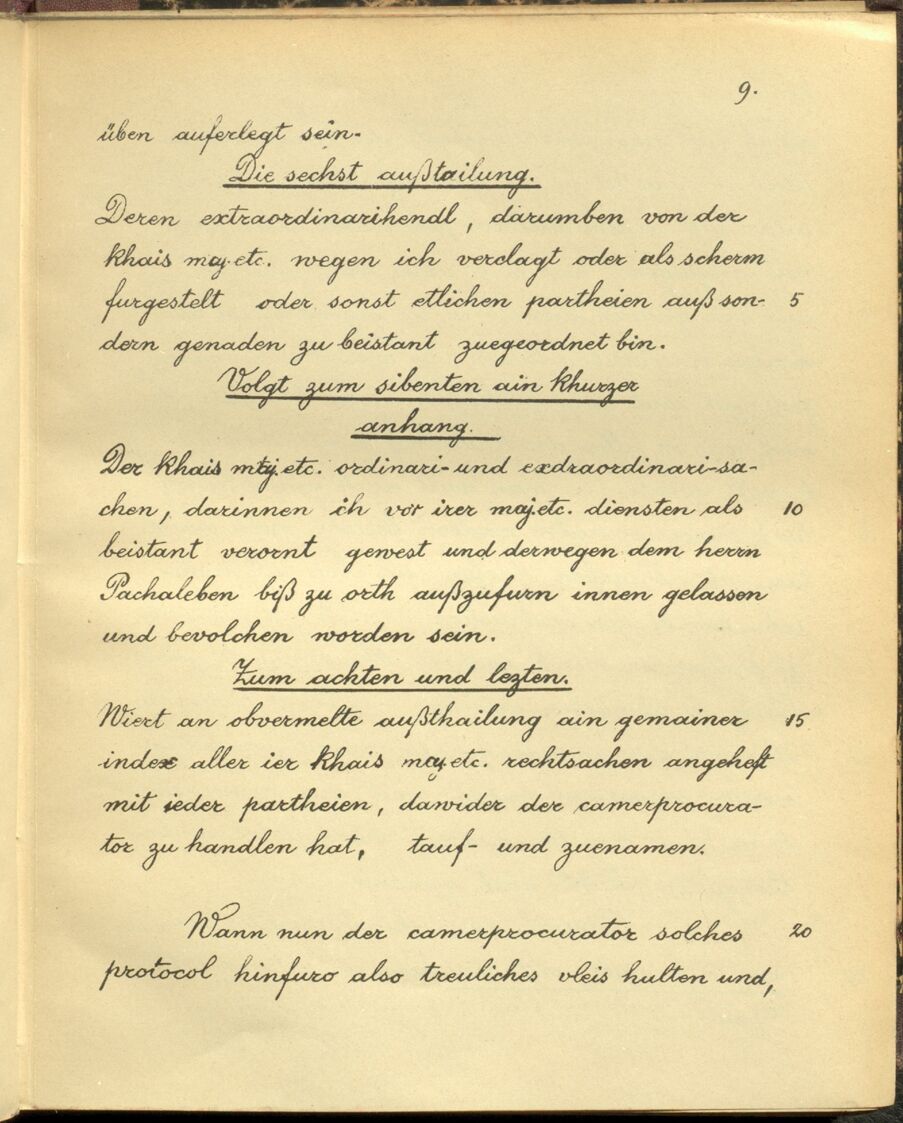 9.
üben auferlegt sein.
Die sechst außtailung.
Deren extraordinarihendl, darumben von der
khais maj. etc. wegen ich verclagt oder als scherm
furgestelt oder sonst etlichen partheien auß son- 5
dern genaden zu beistant zuegeordnet bin.
Volgt zum sibenten ain khurzer
anhang.
Der khais mtj. etc. ordinari- und exdraordinari-sa-
chen, darinnen ich vor irer maj. etc. diensten als 10
beistant verornt gewest und derwegen dem herrn
Pachaleben biß zu orth außzufurn innen gelassen
und bevolchen worden sein.
Zum achten und lezten.
Wiert an obvermelte außthailung ain gemainer 15
index aller ier khais maj. etc. rechtsachen angeheft
mit ieder partheien, dawider der camerprocura-
tor zu handlen hat, tauf- und zuenamen.
Wann nun der camerprocurator solches 20
protocol hinfuro also treuliches vleis hulten und,